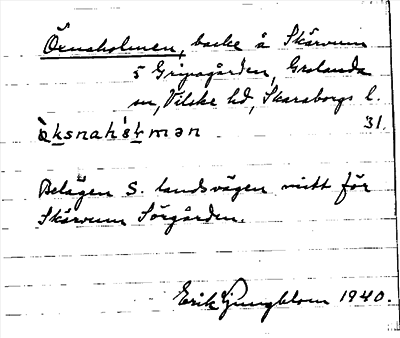 Öxnaholmen, backe å Skärvum
5 Gripsgården, Grolanda
sn, Vilske hd, Skaraborgs l.
31.
Belägen S. landsvägen mitt för
Skärvum Sörgården.
Erik Ljungblom 1940.